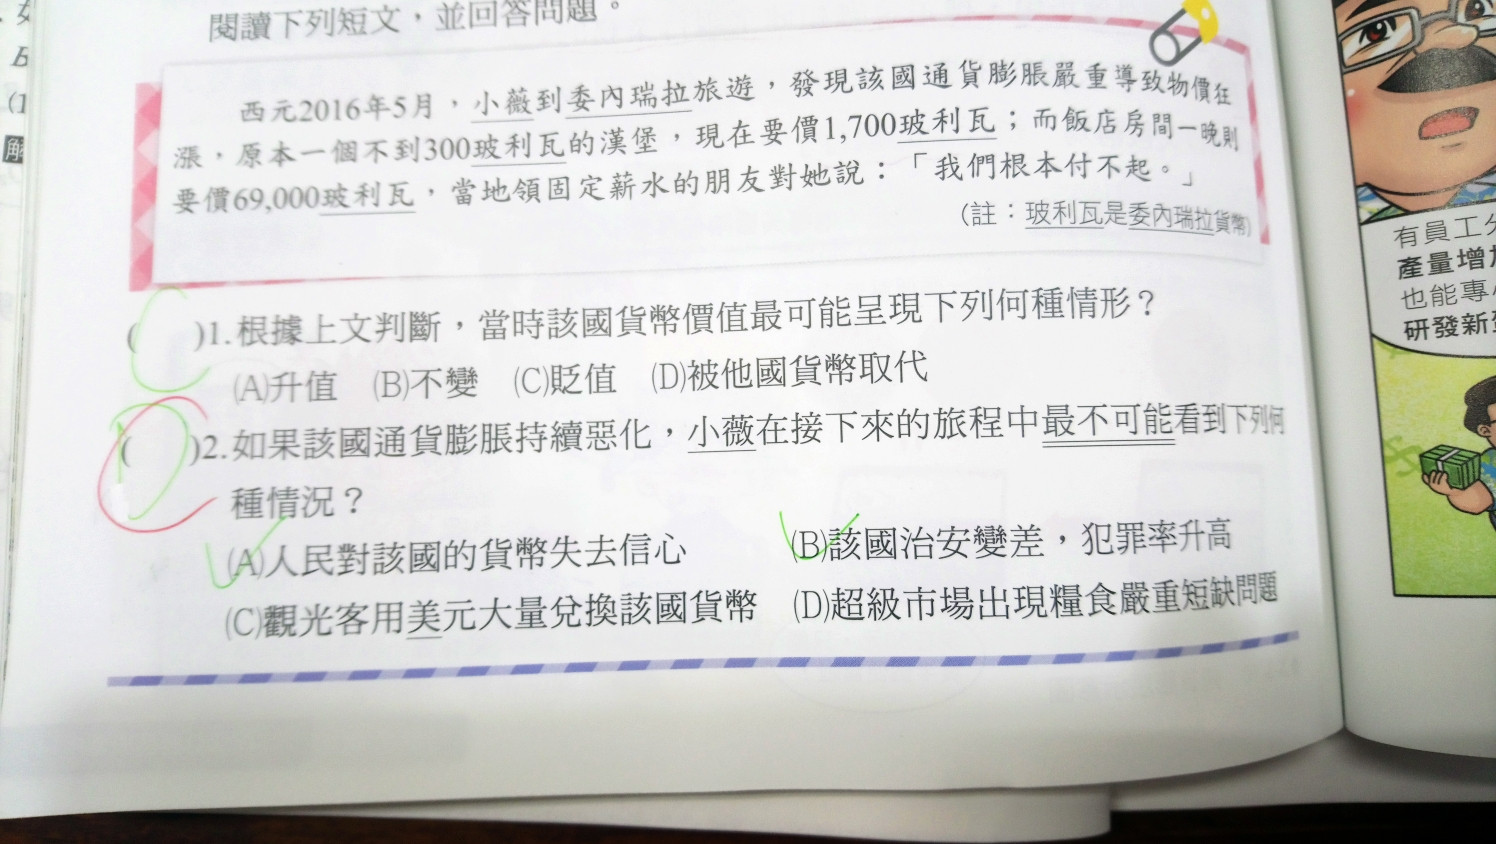 閱讀下列短文，並回答問題。
西元2016年5月，小薇到委內瑞拉旅遊，發現該國通貨膨脹嚴重導致物價狂
漲，原本一個不到300玻利瓦的漢堡，現在要價1,700玻利瓦；而飯店房間一晚則
要價69,000玻利瓦，當地領固定薪水的朋友對她說：「我們根本付不起。」
(註：玻利瓦是委內瑞拉貨幣)
( C )1.根據上文判斷，當時該國貨幣價值最可能呈現下列何種情形？
(A)升值 (B)不變 (C)貶值 (D)被他國貨幣取代
( D )2.如果該國通貨膨脹持續惡化，小薇在接下來的旅程中最不可能看到下列何
種情況？
(A)人民對該國的貨幣失去信心 (B)該國治安變差，犯罪率升高
(C)觀光客用美元大量兌換該國貨幣 (D)超級市場出現糧食嚴重短缺問題
有員工分
產量增加
也能專心
研發新